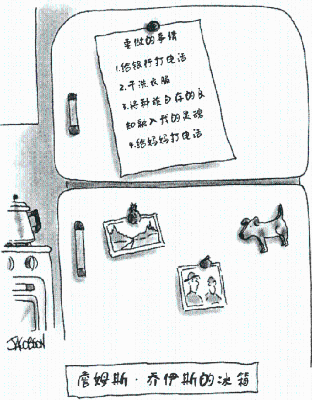 要做的事情
1.给银行打电话
2.干洗衣服
3.将种族自存的良
知融入我的灵魂
4.给妈妈打电话
JACOBSON
詹姆斯·乔伊斯的冰箱